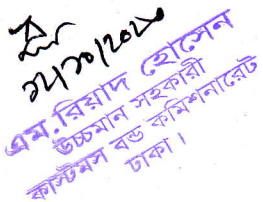 ১২/১০/২০২০
এম. রিয়াদ হোসেন
উচ্চমান সহকারী
কাস্টমস বন্ড কমিশনারেট
ঢাকা।